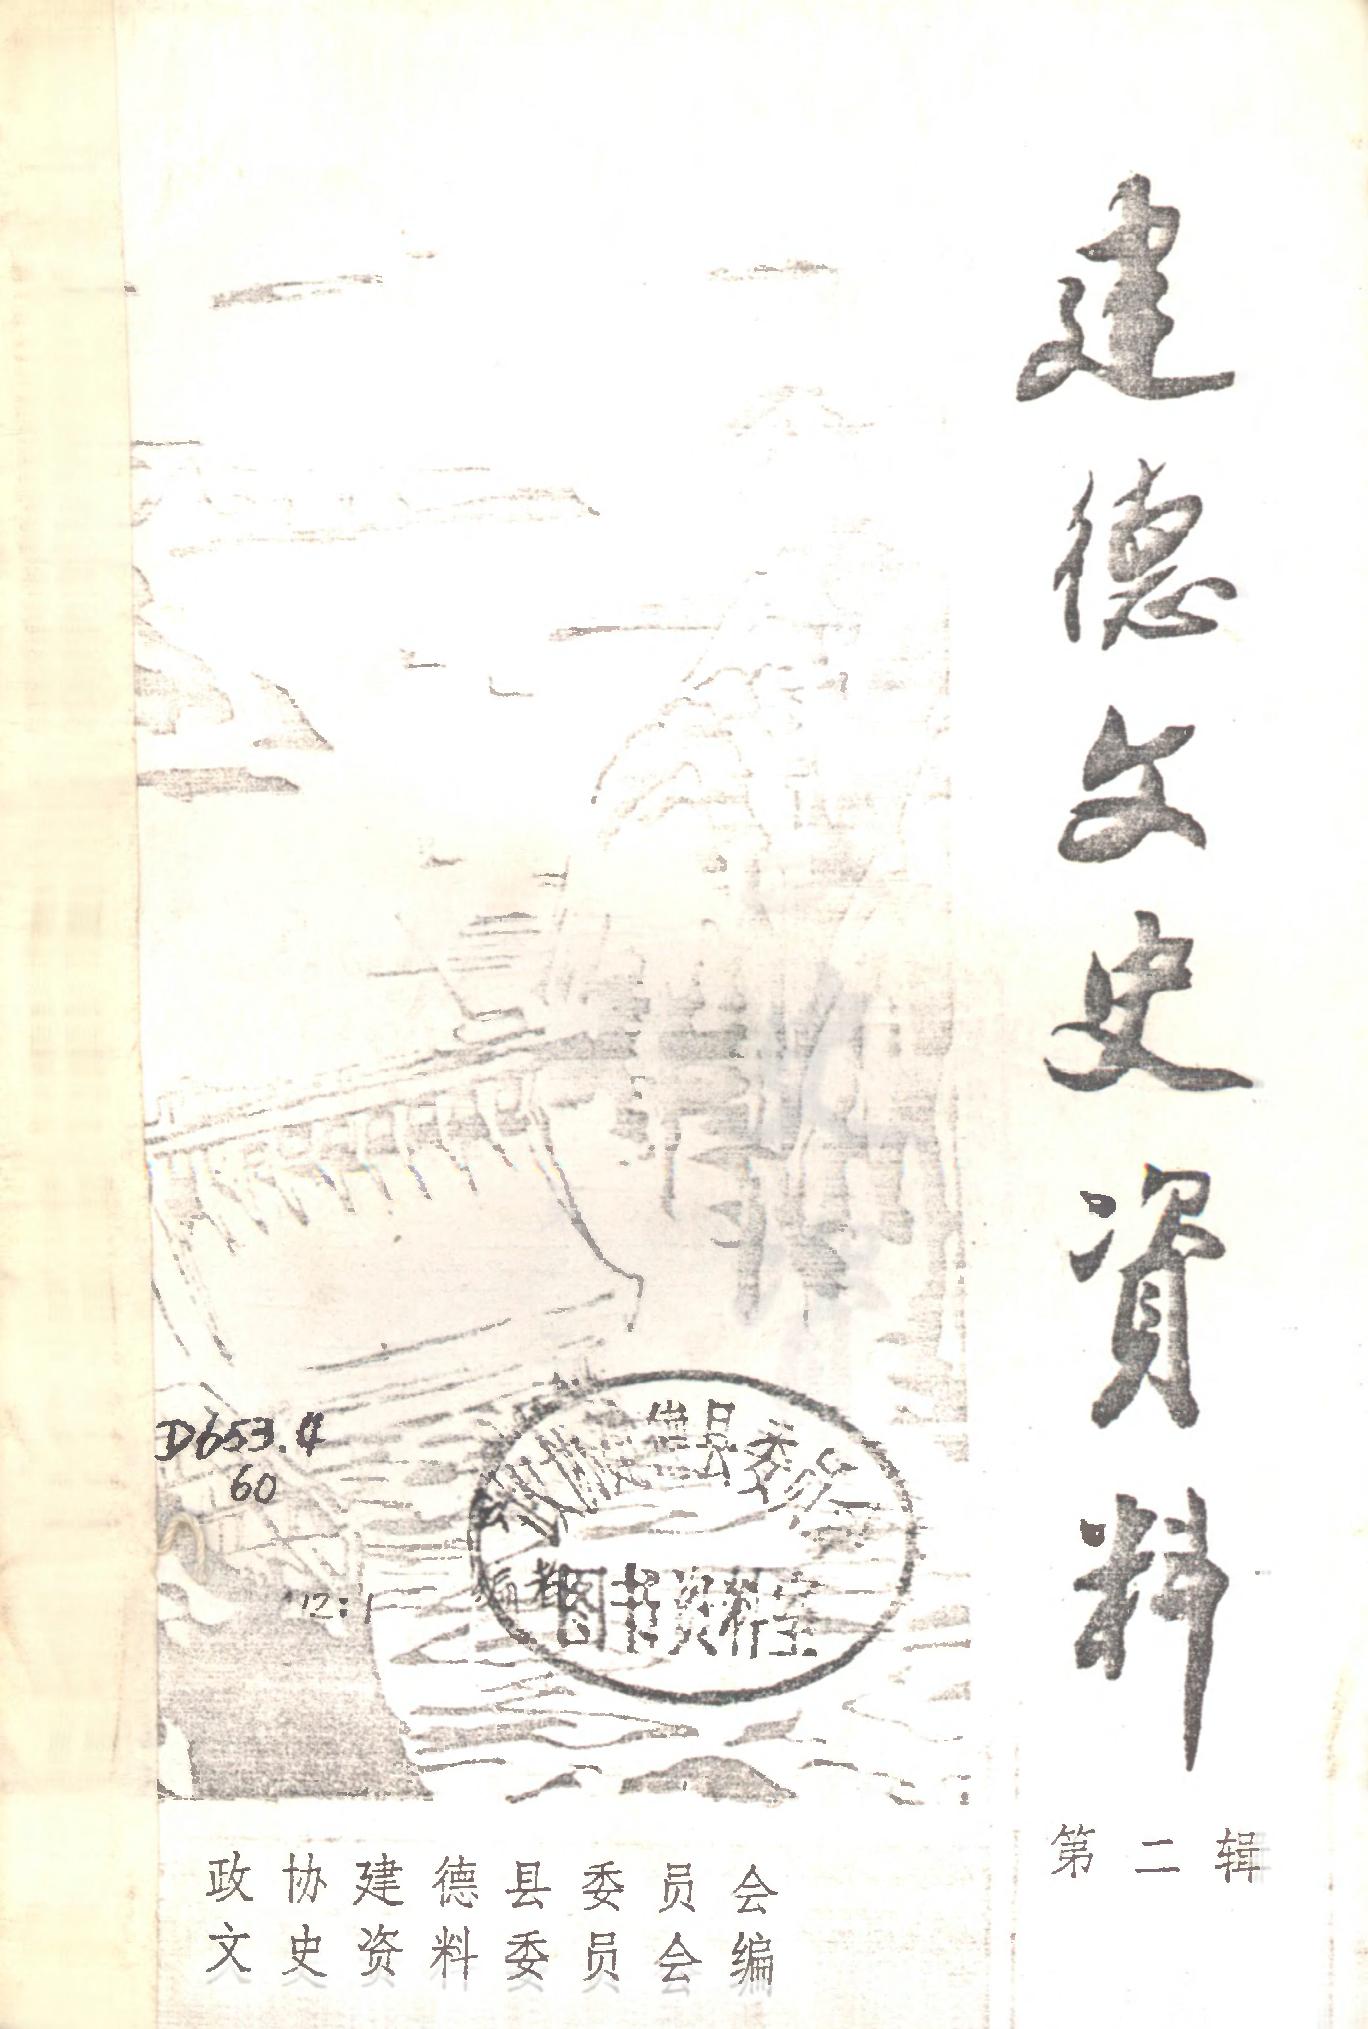 建德文史资料
第二辑
D653.4
60
12:1
德县委员
图书资料室
政协建德县委员会
文史资料委员会编